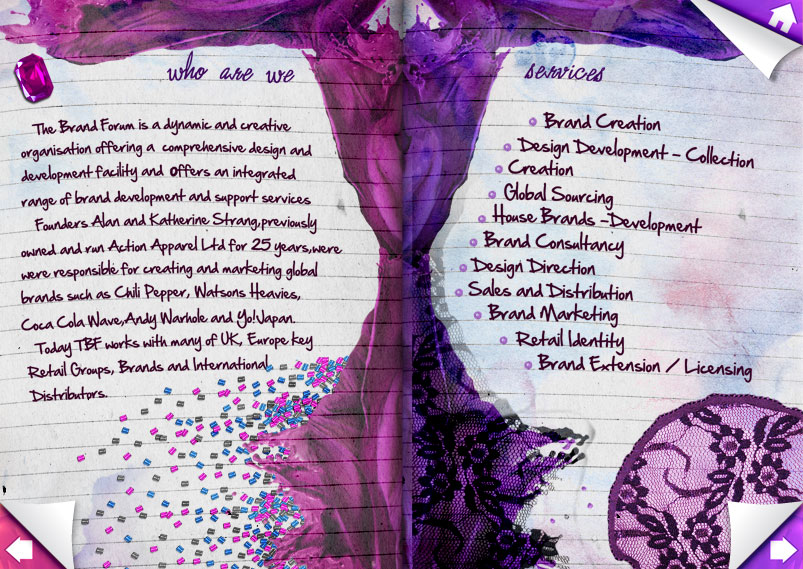 who are we
The Brand Forum is a dynamic and creative
organisation offering a comprehensive design and
development facility and offers an integrated
range of brand development and support services
Founders Alan and Katherine Strang,previously
owned and run Action Apparel Ltd for 25 years,were
were responsible for creating and marketing global
brands such as Chili Pepper, Watsons Heavies,
Coca Cola Wave,Andy Warhole and Yo!Japan.
Today TBF works with many of UK, Europe key
Retail Groups, Brands and International
Distributors.
services
Brand Creation
Design Development - Collection
Creation
Global Sourcing
House Brands -Development
Brand Consultancy
Design Direction
Sales and Distribution
Brand Marketing
Retail Identity
Brand Extension / Licensing